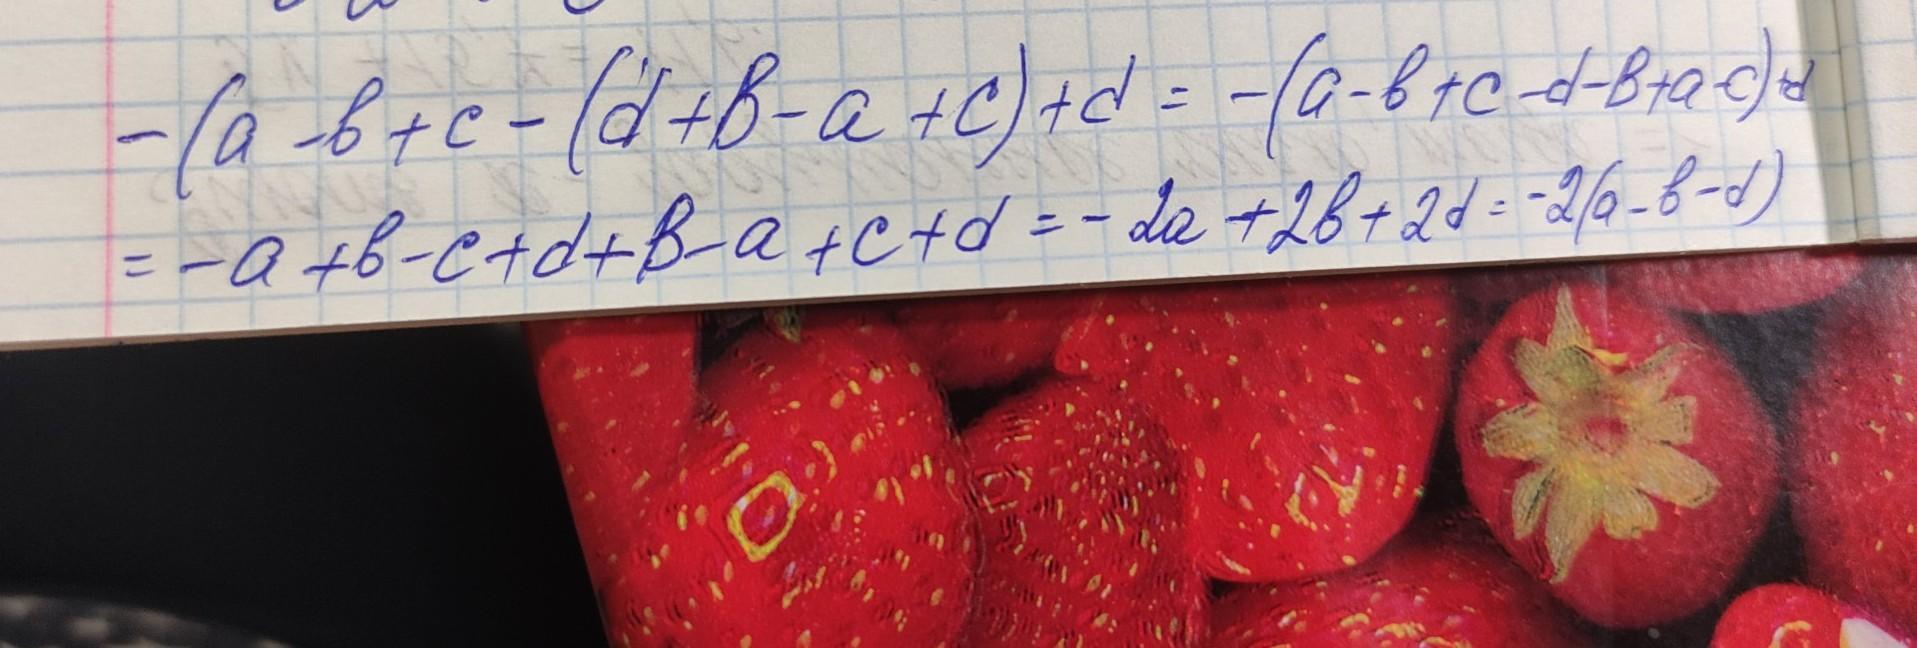 -(a-b+c-(d+b-a+c)+d=-(a-b+c-d-b+a-c)+d
=-a+b-c+d+b-a+c+d=-2a+2b+2d=-2(a-b-d)